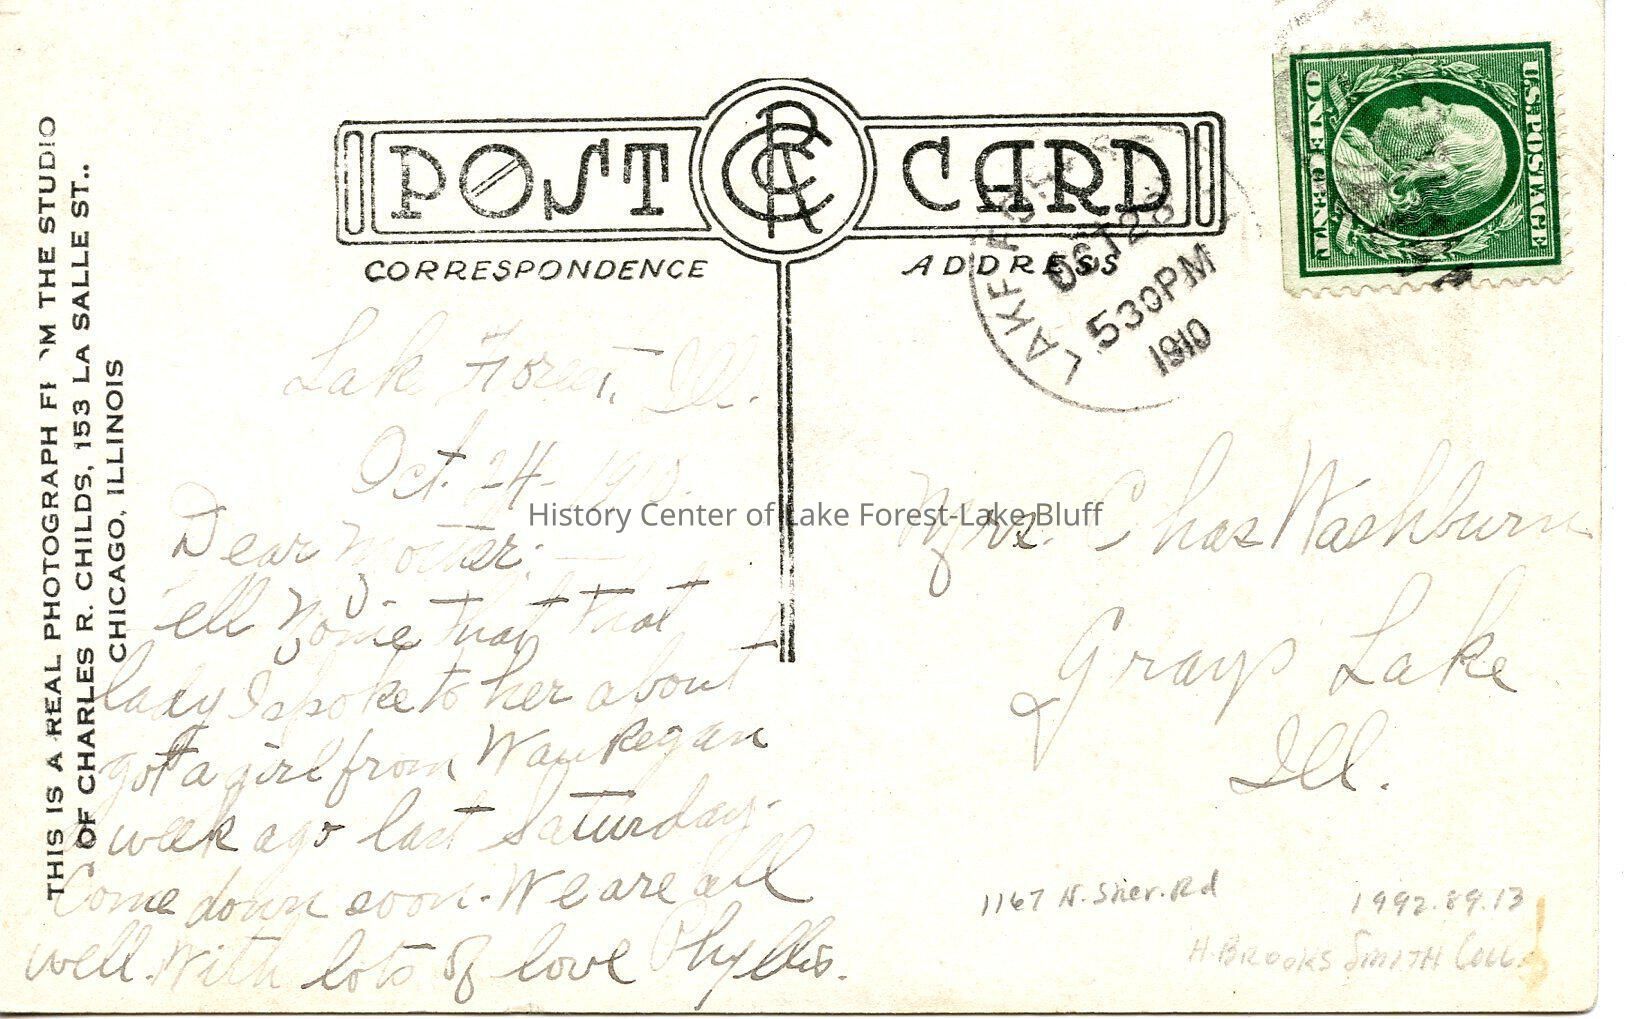 THIS IS A REAL PHOTOGRAPH FR'M THE STUDIO
OF CHARLES R. CHILDS, 153 LA SALLE ST..
CHICAGO, ILLINOIS
POST CARD
CRC
CORRESPONDENCE
ADDRESS
U.S. POSTAGE
ONE CENT
LAKE FOREST
OCT 2
530PM
1910
Lake Forest, Ill.
Oct. 24- 1910.
Dear Mother:—
Tell that that
lady I spoke to her about
got a girl from Waukegan
a week ago last Saturday.
Come down soon. We are all
well. With lots of love Phyllis.
Mrs. Chas Washburn
Grays Lake
Ill.
History Center of Lake Forest-Lake Bluff
1167 N. Sher. Rd
1992.89.13
H. BROOKS SMITH COLL.